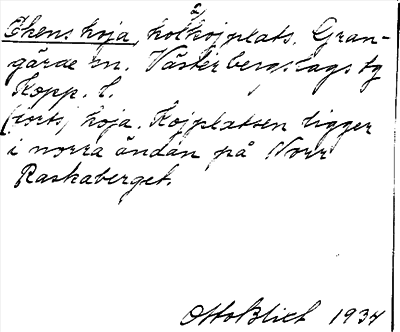 2)
Ehens koja, kolkojplats. Gran-
gärde sn. Västerbergslags tg
Kopp. l.
(forts) koja. Kojplatsen ligger
i norra ändan på Norr
Raskaberget.
Otto Blixt 1934